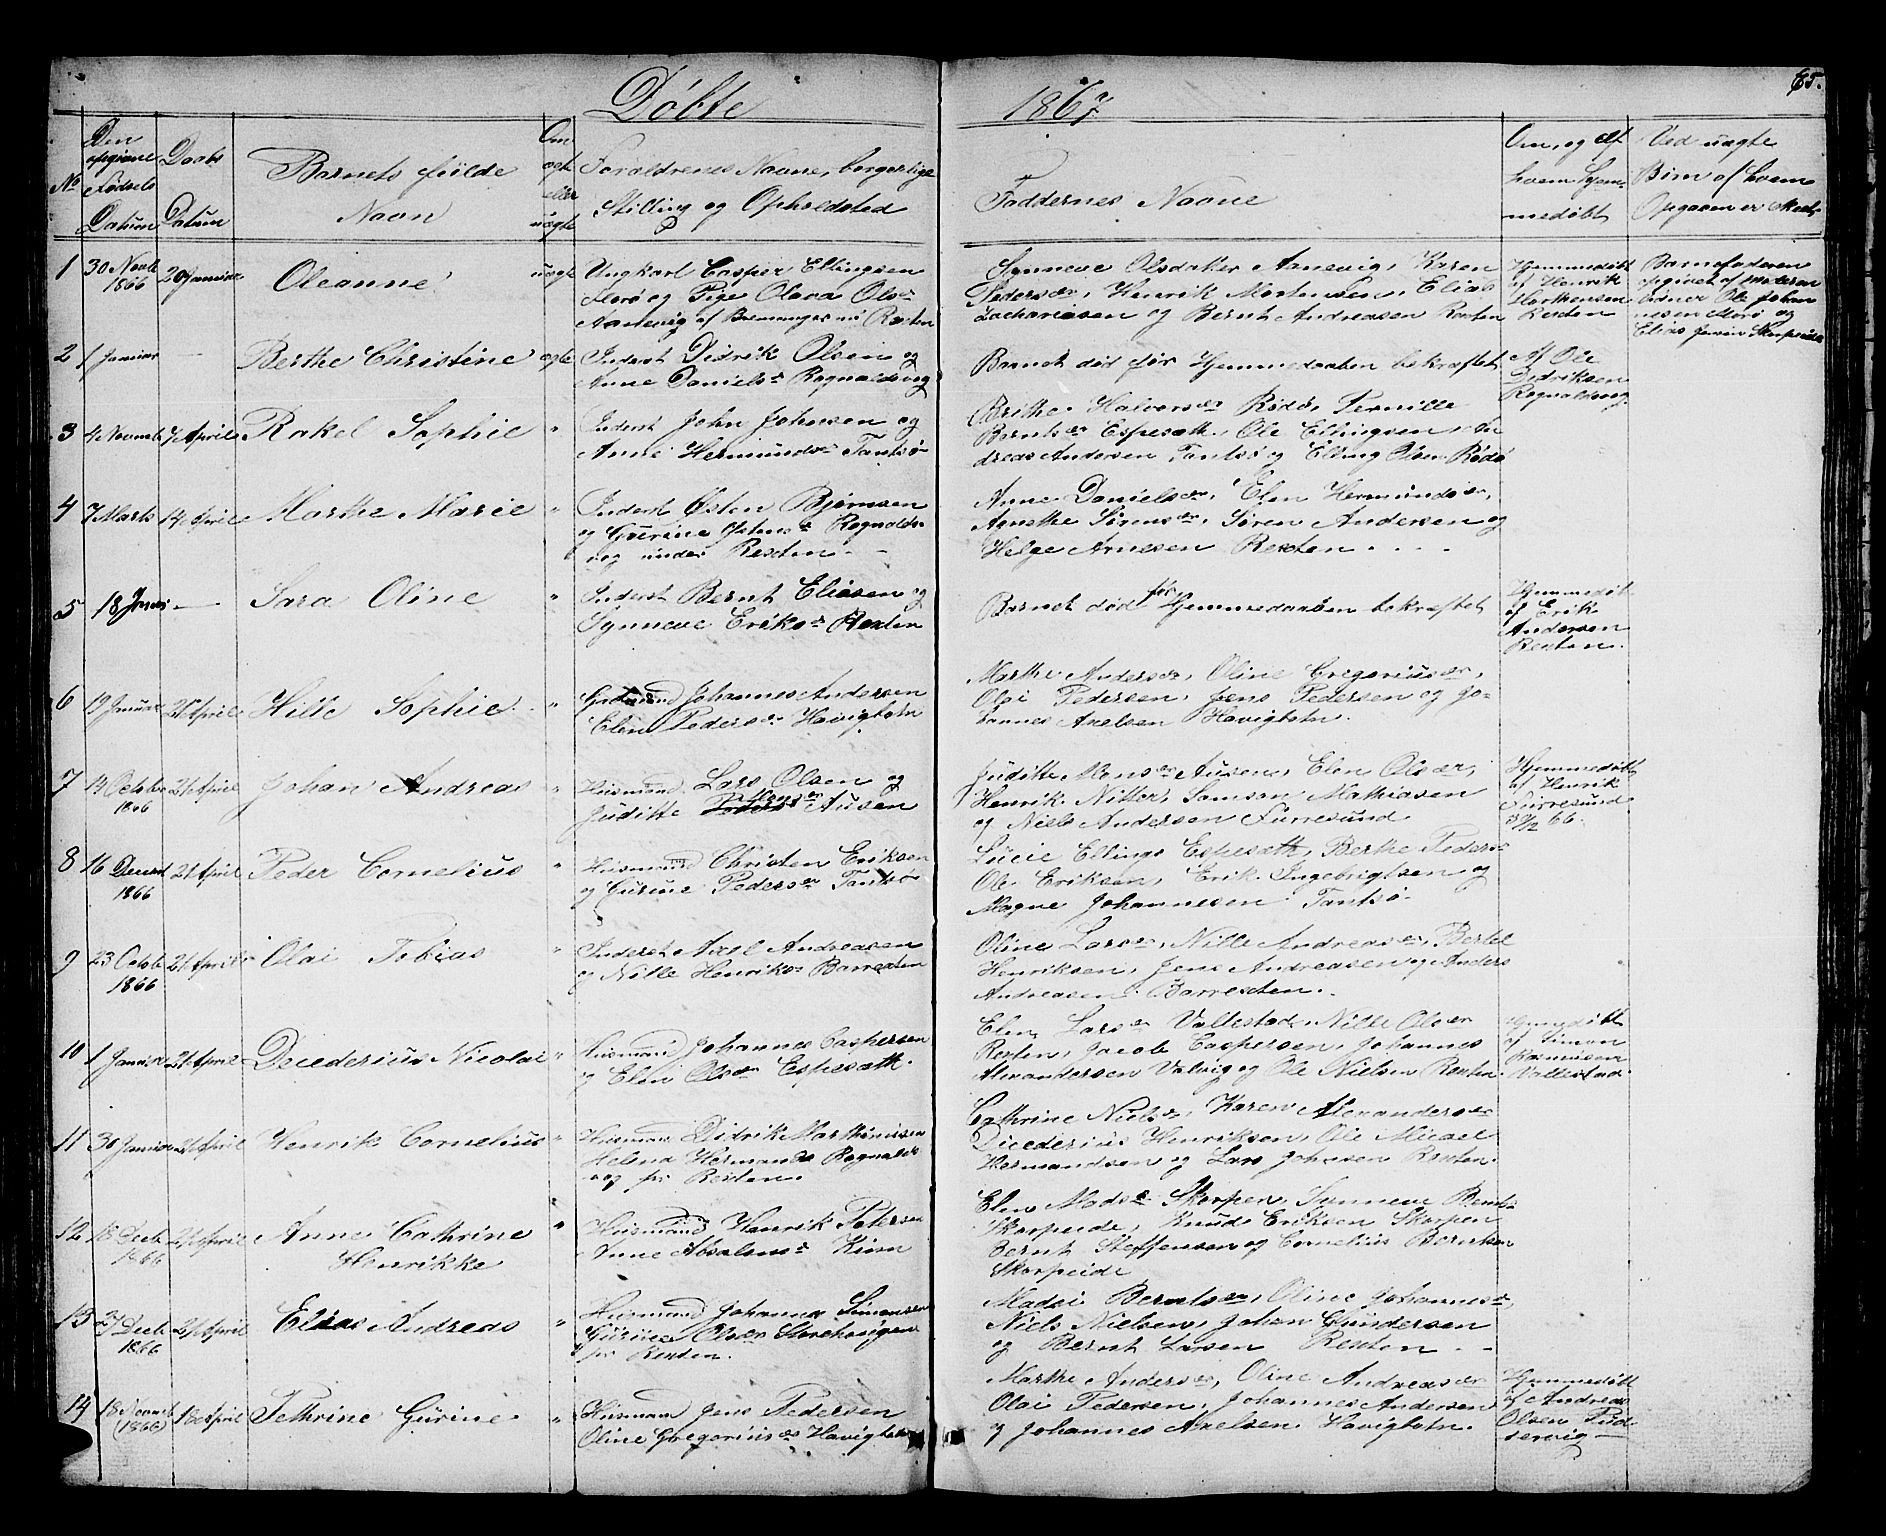 Döbte 1867
65.
No
Den opgivne Fødsels Datum
Daabs Datum
Barnets fulde Navn
Om ægte eller uægte
Foraldrenes Navne, borgerlige Stilling og Opholdsted
Faddernes Navne
Om, og af hvem hjemmedöbt
Ved uægte Börn af hvem Opgaven er
1 30 Novb 1866 20 Januar Oleanne uægte
Ungkarl Casper Ellingsen
Florö og Pige Olava Ols
Aanevig af Bremanger nu Rexten
Synneve Olsdatter Aanevig, Karen
Peders, Henrik Mortensen, Elias
Zachariasen og Bernt Andreasen Rexten
Hjemmedöbt
af Henrik
Morthensen
Rexten
Barnefaderen
opgivet af
Ole Johan
nesen Florö og
Elias Jansen Skorpeide
2 1 Januar — Berthe Christine ægte
Inderst Didrik Olsen og
Anne Daniels Rognaldsvog
Barnet död för Hjemmedaaben bekræftet
Af Ole
Didriksen
Rognaldsvog
3 4 Novemb 7 April Rakel Sophie "
Inderst John Johnsen og
Anne Hermunds Tantsö
Brithe Halvors Rödö, Pernille
Bernts Espesæth, Ole Ellingsen, An
dreas Andersen Tantsö og Elling Olsen Rödö
4 7 Marts 14 April Marthe Marie "
Inderst Østen Bjørnsen
og Gurine Johns Rognalds-
vog under Rexten
Anne Daniels, Elen Hermunds,
Agnethe Sörens, Sören Andersen og
Helge Arnesen Rexten
5 18 Janu — Sara Oline "
Inderst Bernt Eliasen og
Synneve Eriks Rexten
Barnet död för Hjemmedaaben bekræftet
Hjemmedöbt
af Erik
Andersen
Rexten.
6 19 Januar 21 April Hille Sophie "
Johannes Andersen
Elen Peders Havigbotn
Marthe Anders, Oline Gregorius,
Olai Pedersen, Jens Pedersen og Jo-
hannes Axelsen Havigbotn.
7 14 Octob 1866 21 April Johan Andreas "
Huusmand Lars Olsen og
Juditte Mons Ausen
Juditte Mons Ausen, Elen Ols,
Henrik Nitter, Samson Mathiasen
og Niels Andersen Furresund.
Hjemmedöbt
af Henrik
Furresund
66.
8 16 Decemb 1866 21 April Peder Cornelius "
Huusmand Christen Eriksen
og Gurine Peders Tantsö
Lucie Ellings Espesæth, Berthe Peders
Ole Eriksen, Erik Ingebrigtsen og
Magne Johannesen Tantsö.
9 23 Octob 1866 21 April Olai Tobias "
Inderst Axel Andreasen
og Nille Henriks Barrexten
Oline Lars, Nille Andreas, Bertel
Henriksen, Jens Andreasen og Anders
Andreasen Barrexten.
10 1 Januar 21 April Decederius Nicolai "
Huusmand Johannes Caspersen
og Elen Ols Espesæth.
Elen Lars Vallestad, Nille Ols
Rexten, Jacob Caspersen, Johannes
Alexandersen Valvig og Ole Nielsen Rexten.
Hjemmedöbt
af Simon
Rasmusen
Vallestad.
11 30 Januar 21 April Henrik Cornelius "
Huusmand Didrik Marthinusen
Helena Hermands Rognalds-
vog pr Rexten.
Cathrine Niels, Karen Alexanders
Decederius Henriksen, Ole Micael
Hermandsen og Lars Johnsen Rexten.
12 18 Decb 1866 21 April Anne Cathrine Henrikke "
Huusmand Henrik Petersen
Anne Absalons Kinn
Elen Mads Skorpen, Synneve Bernts
Skorpeide, Knud Eriksen Skorpen
Bernt Steffensen og Cornelius Berntsen
Skorpeide
13 27 Decb 1866 21 April Elias Andreas "
Huusmand Johannes Simonsen
Gurine Ols Storehaugen
pr Rexten.
Madsi Bernts, Oline Johannes,
Niels Nielsen, Johan Gundersen
og Bernt Larsen Rexten
14 18 Novemb (1866) 18 April Pethrine Gurine "
Huusmand Jens Pedersen
Oline Gregorius Havigbotn
Marthe Anders, Oline Andreas
Olai Pedersen, Johannes Andersen
og Johannes Axelsen Havigbotn.
Hjemmedöbt
af Andreas
Olsen